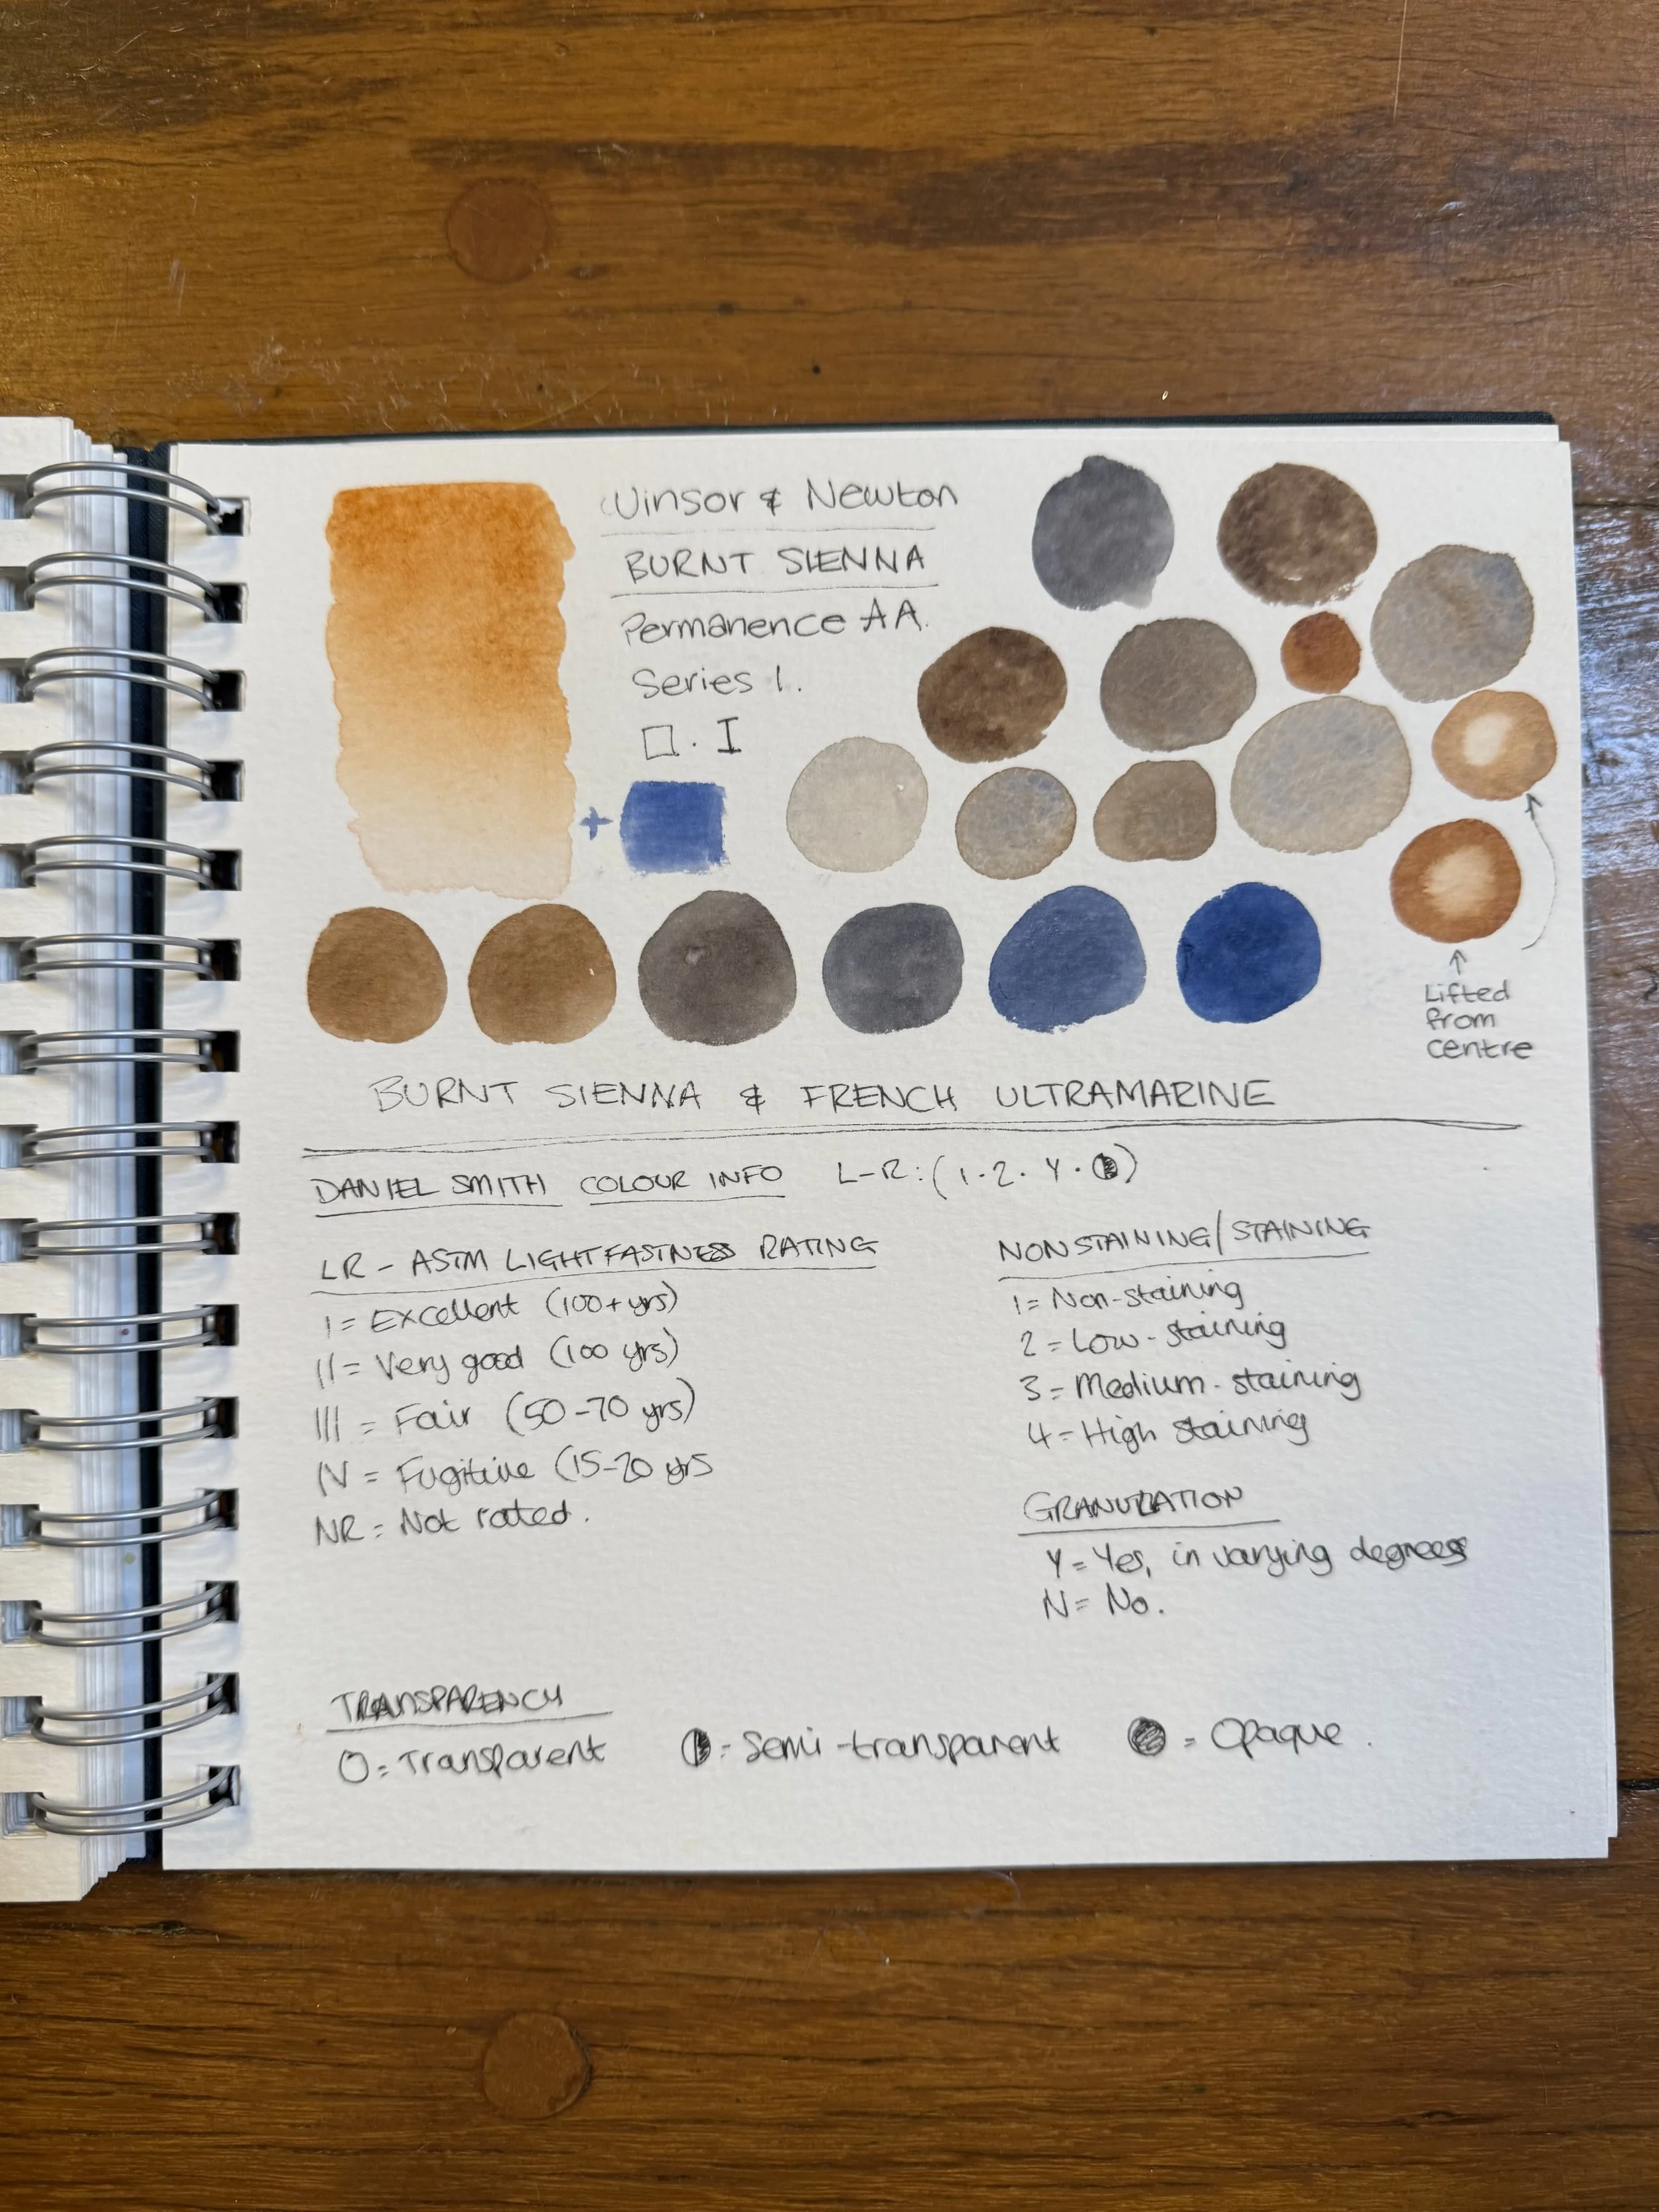 Winsor & Newton
BURNT SIENNA
Permanence AA.
Series 1.
□ · I
+
Lifted
from
centre
BURNT SIENNA & FRENCH ULTRAMARINE
DANIEL SMITH COLOUR INFO L-R: (1·2·Y·◑)
LR - ASTM LIGHTFASTNESS RATING
I = Excellent (100+yrs)
II = Very good (100 yrs)
III = Fair (50-70 yrs)
IV = Fugitive (15-20 yrs
NR = Not rated.
NONSTAINING/STAINING
1 = Non-staining
2 = Low-staining
3 = Medium-staining
4 = High staining
GRANULATION
Y = Yes, in varying degrees
N = No.
TRANSPARENCY
O = Transparent ◑ = Semi-transparent ● = Opaque.